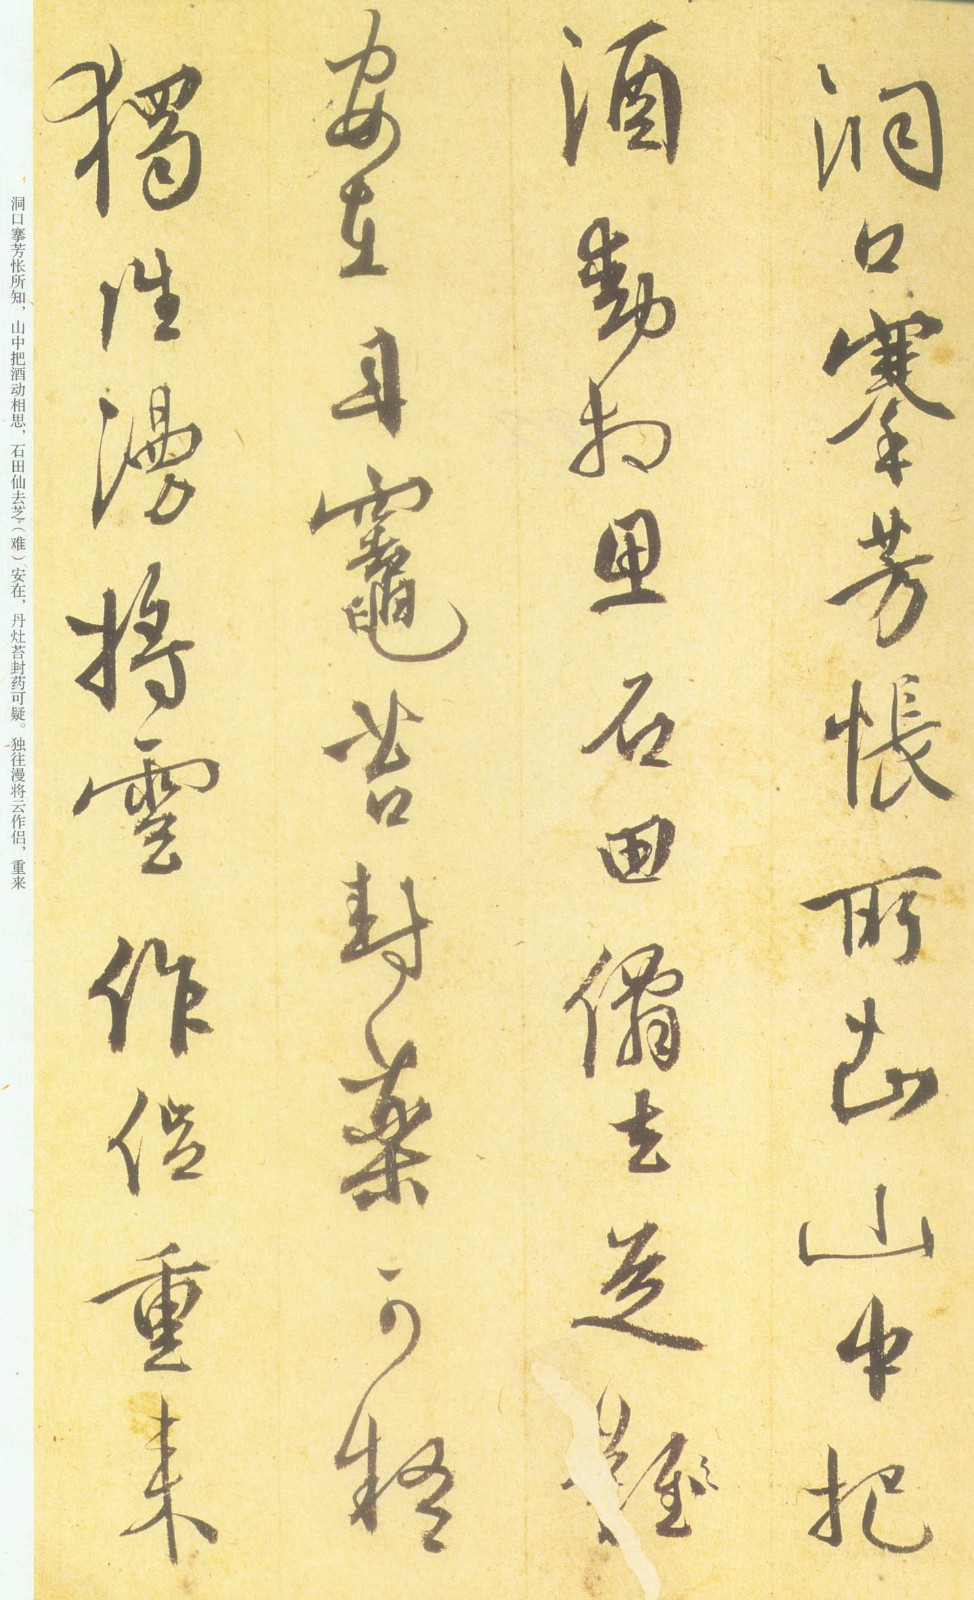 洞口搴芳悵所知山中把
酒動相思石田僊去芝難
安在丹竈苔封藥可疑
獨往漫將雲作侶重来
洞口搴芳怅所知，山中把酒动相思，石田仙去芝（难）安在，丹灶苔封药可疑。独往漫将云作侣，重来